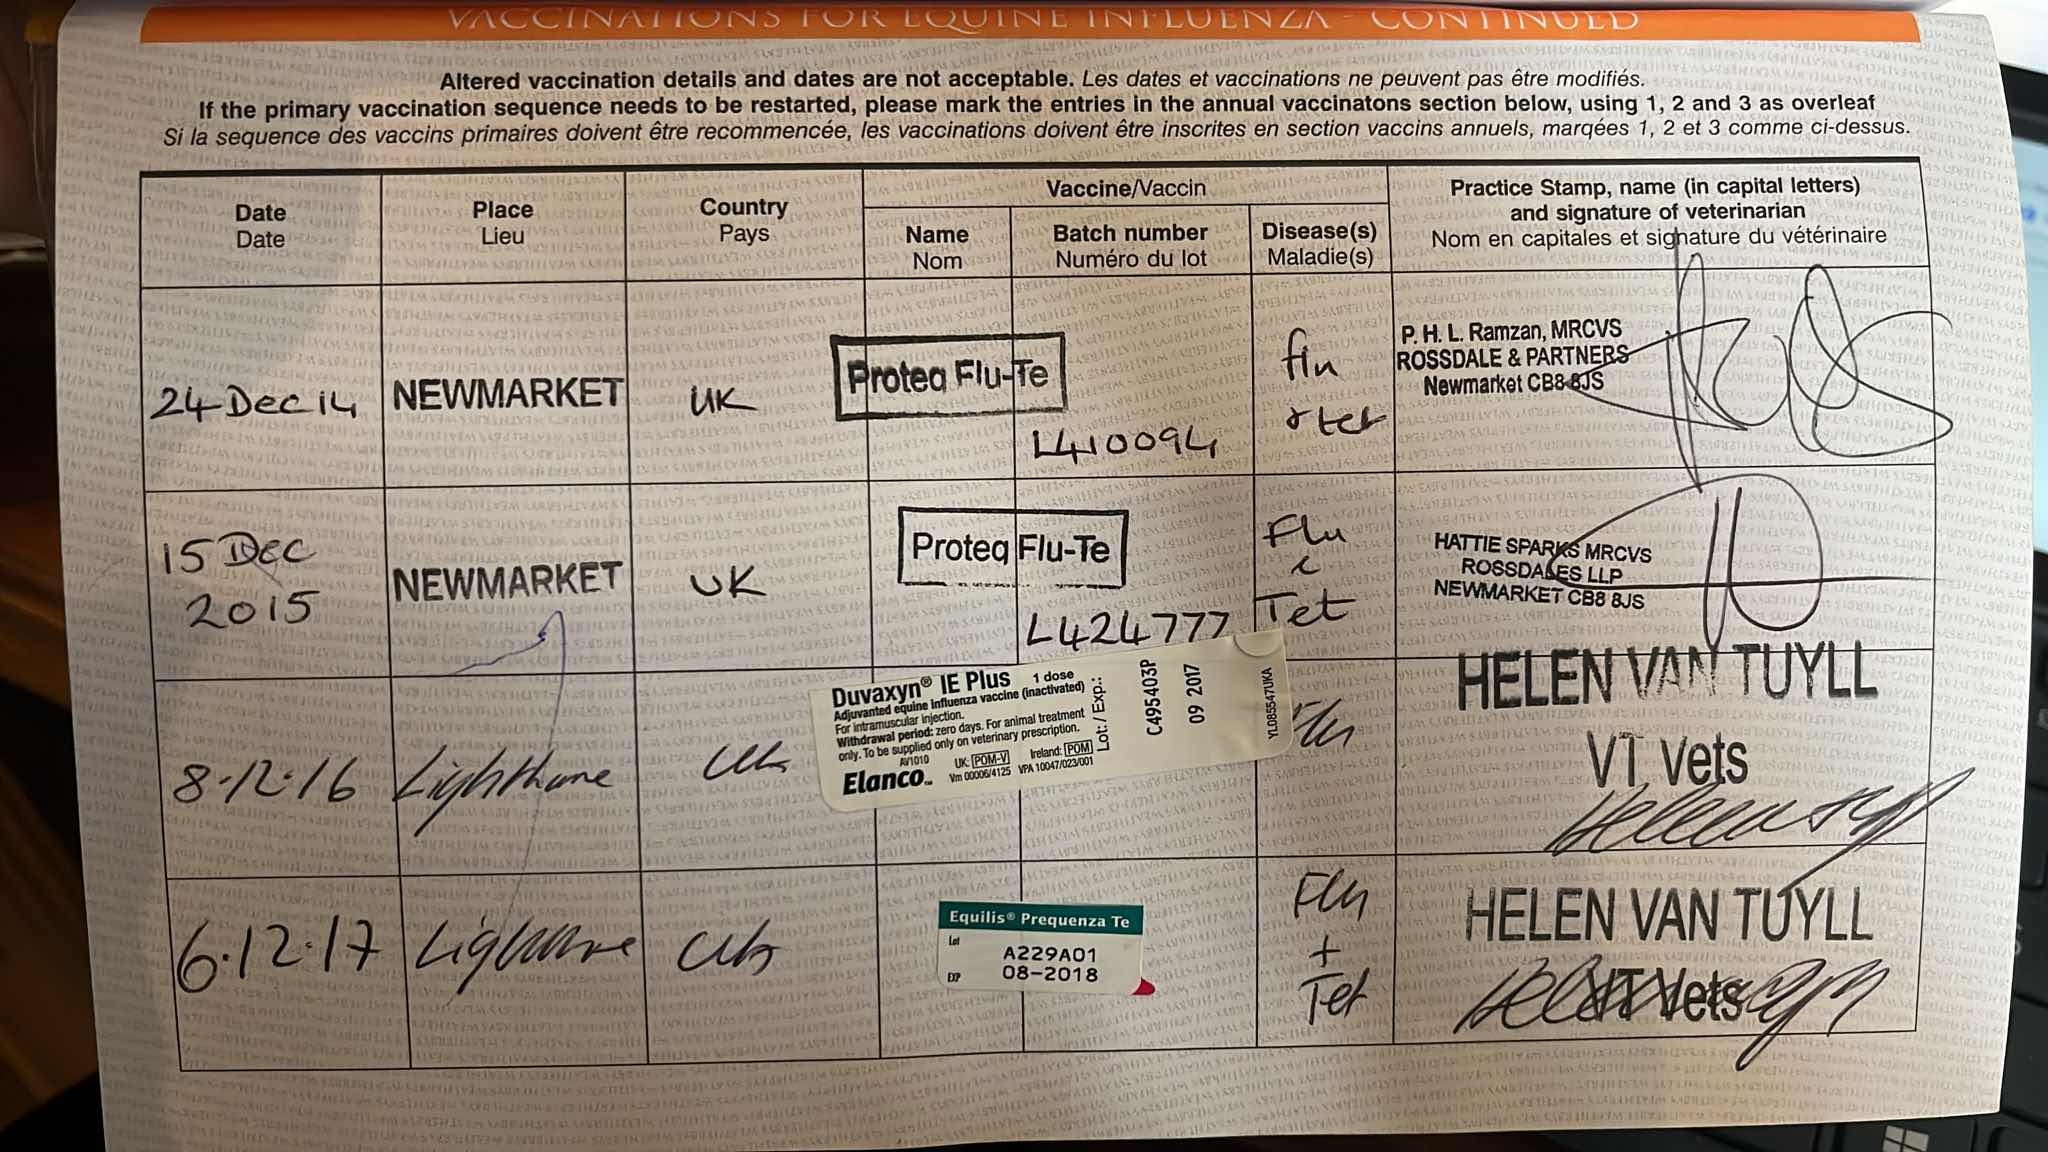 VACCINATIONS FOR EQUINE INFLUENZA - CONTINUED
Altered vaccination details and dates are not acceptable. Les dates et vaccinations ne peuvent pas être modifiés.
If the primary vaccination sequence needs to be restarted, please mark the entries in the annual vaccinatons section below, using 1, 2 and 3 as overleaf
Si la sequence des vaccins primaires doivent être recommencée, les vaccinations doivent être inscrites en section vaccins annuels, marqées 1, 2 et 3 comme ci-dessus.
Date
Date
Place
Lieu
Country
Pays
Vaccine/Vaccin
Name
Nom
Batch number
Numéro du lot
Disease(s)
Maladie(s)
Practice Stamp, name (in capital letters)
and signature of veterinarian
Nom en capitales et signature du vétérinaire
24 Dec 14
NEWMARKET
UK
Proteq Flu-Te
L410094
flu
& tet
P. H. L. Ramzan, MRCVS
ROSSDALE & PARTNERS
Newmarket CB8 8JS
15 Dec
2015
NEWMARKET
UK
Proteq Flu-Te
L424777
Flu
Tet
HATTIE SPARKS MRCVS
ROSSDALES LLP
NEWMARKET CB8 8JS
8.12.16
Lighthorne
UK
Duvaxyn® IE Plus 1 dose
Adjuvanted equine influenza vaccine (inactivated)
For intramuscular injection.
Withdrawal period: zero days. For animal treatment
only. To be supplied only on veterinary prescription.
AV1010
UK: POM-V Ireland: POM
Elanco™ Vm 00006/4125 VPA 10047/023/001
Lot: / Exp.:
C495403P
09 2017
YL085547UKA
Flu
HELEN VAN TUYLL
VT Vets
6.12.17
Lighthorne
UK
Equilis® Prequenza Te
Lot A229A01
EXP 08-2018
Flu
+
Tet
HELEN VAN TUYLL
VT Vets